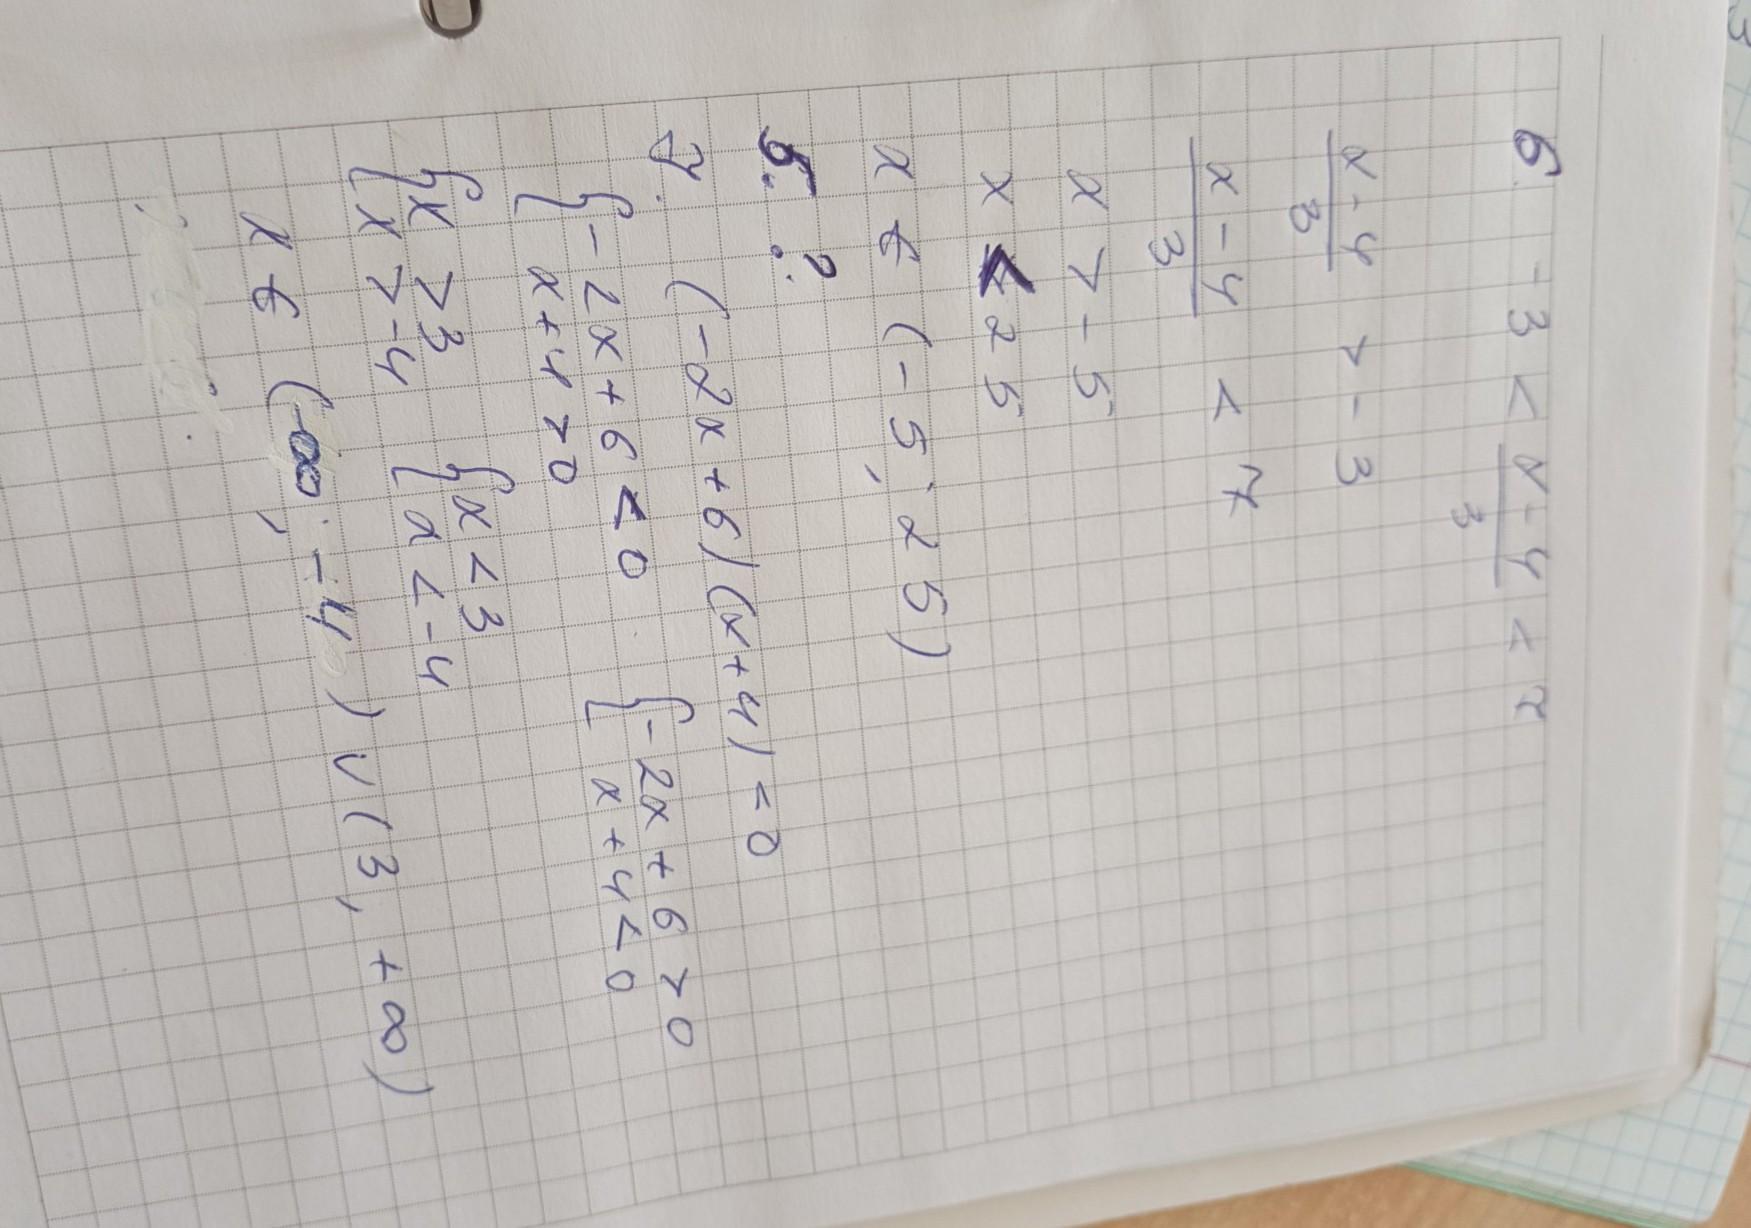 6. -3 < x-4/3 < 7
x-4/3 > -3
x-4/3 < 7
x > -5
x < 25
x ∈ (-5; 25)
5. ?
7. (-2x+6)(x+4) = 0
{-2x+6<0 {-2x+6>0
x+4>0 x+4<0
{x>3 {x<3
{x>-4 {x<-4
x ∈ (-∞; -4) ∪ (3, +∞)